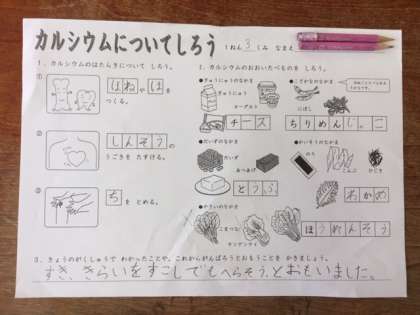 カルシウムについてしろう
1ねん 3 くみ なまえ
1、カルシウムのはたらきについて しろう。
2、カルシウムのおおいたべものを しろう。
ほねやは を
つくる。
しんぞうの
うごきを たすける。
ち を とめる。
●ぎゅうにゅうのなかま
ぎゅうにゅう
ヨーグルト
チーズ
●こざかなのなかま
にぼし
ちりめんじゃこ
●だいずのなかま
だいず
あつあげ
とうふ
●かいそうのなかま
のり
こんぶ
ひじき
わかめ
●やさいのなかま
こまつな
チンゲンサイ
ほうれんそう
3、きょうのがくしゅうで わかったことや、これからがんばろうとおもうことを かきましょう。
すき、きらいをすこしでもへらそう、とおもいました。